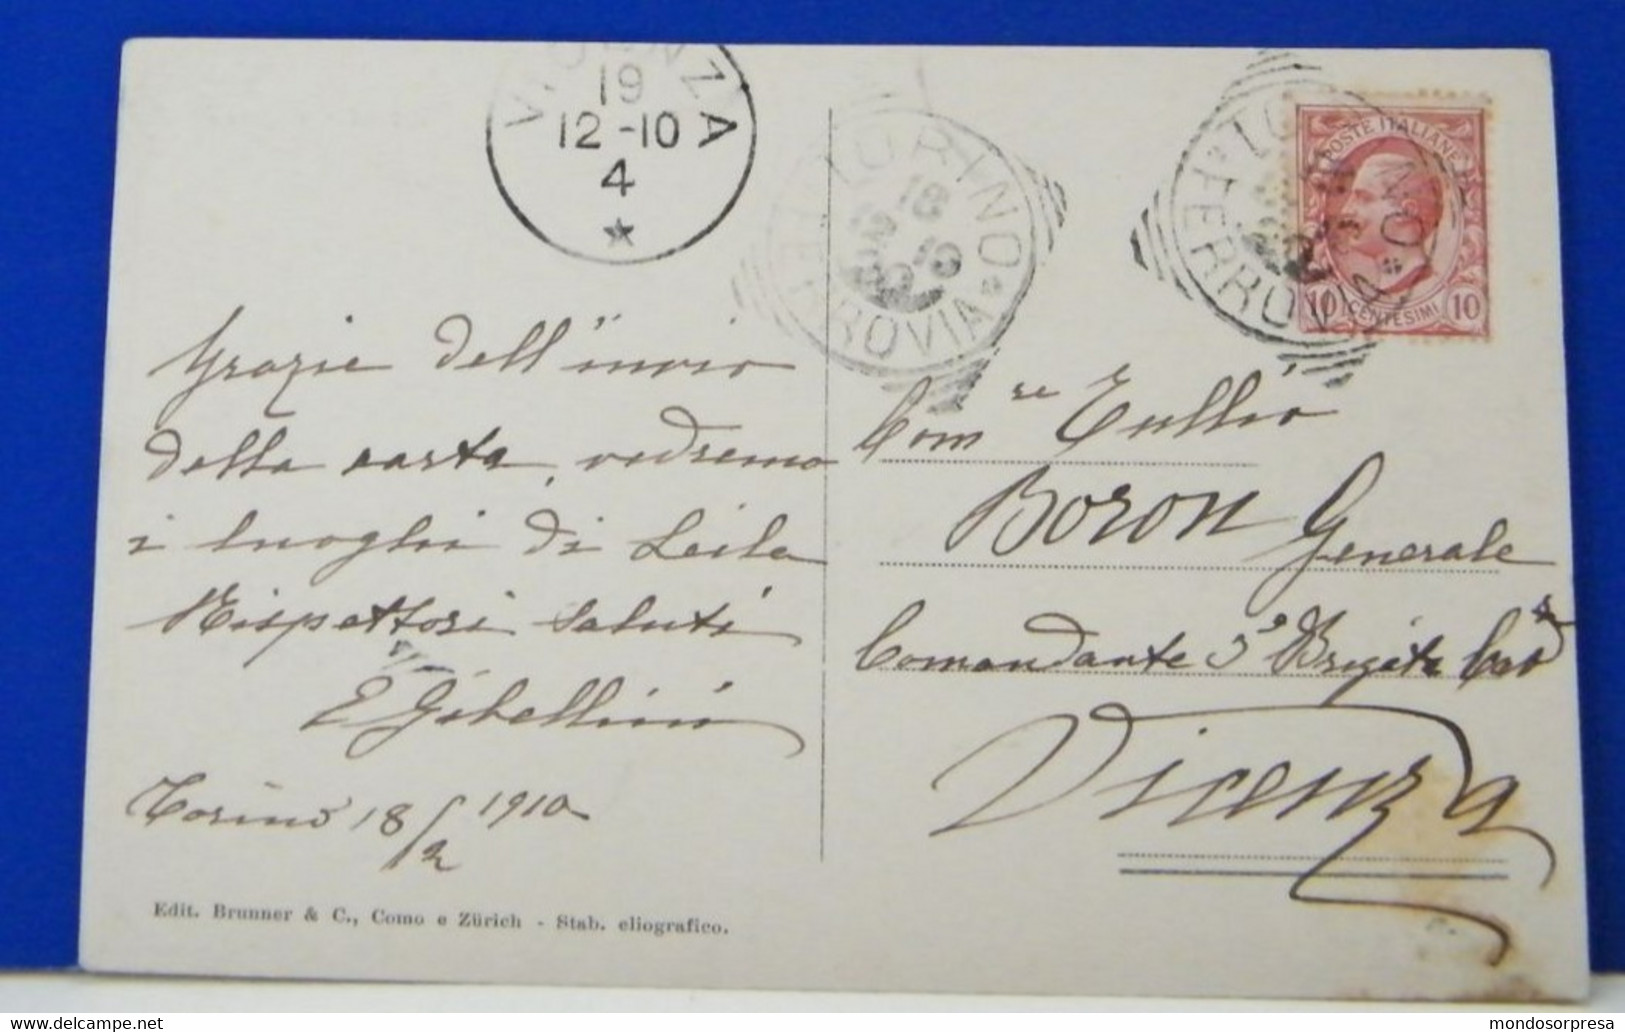 VICENZA
19
12-10
4
TORINO
18
FERROVIA
TORINO
FERROVIA
POSTE ITALIANE
10 CENTESIMI 10
Grazie dell'invio
della carta, vedremo
i luoghi di Leila
Rispettosi saluti
E Gibellini
Torino 18/2 1910
Edit. Brunner & C., Como e Zürich - Stab. eliografico.
Com re Tullio
Boron Generale
Comandante 3a Brigata
Vicenza
mondosorpresa